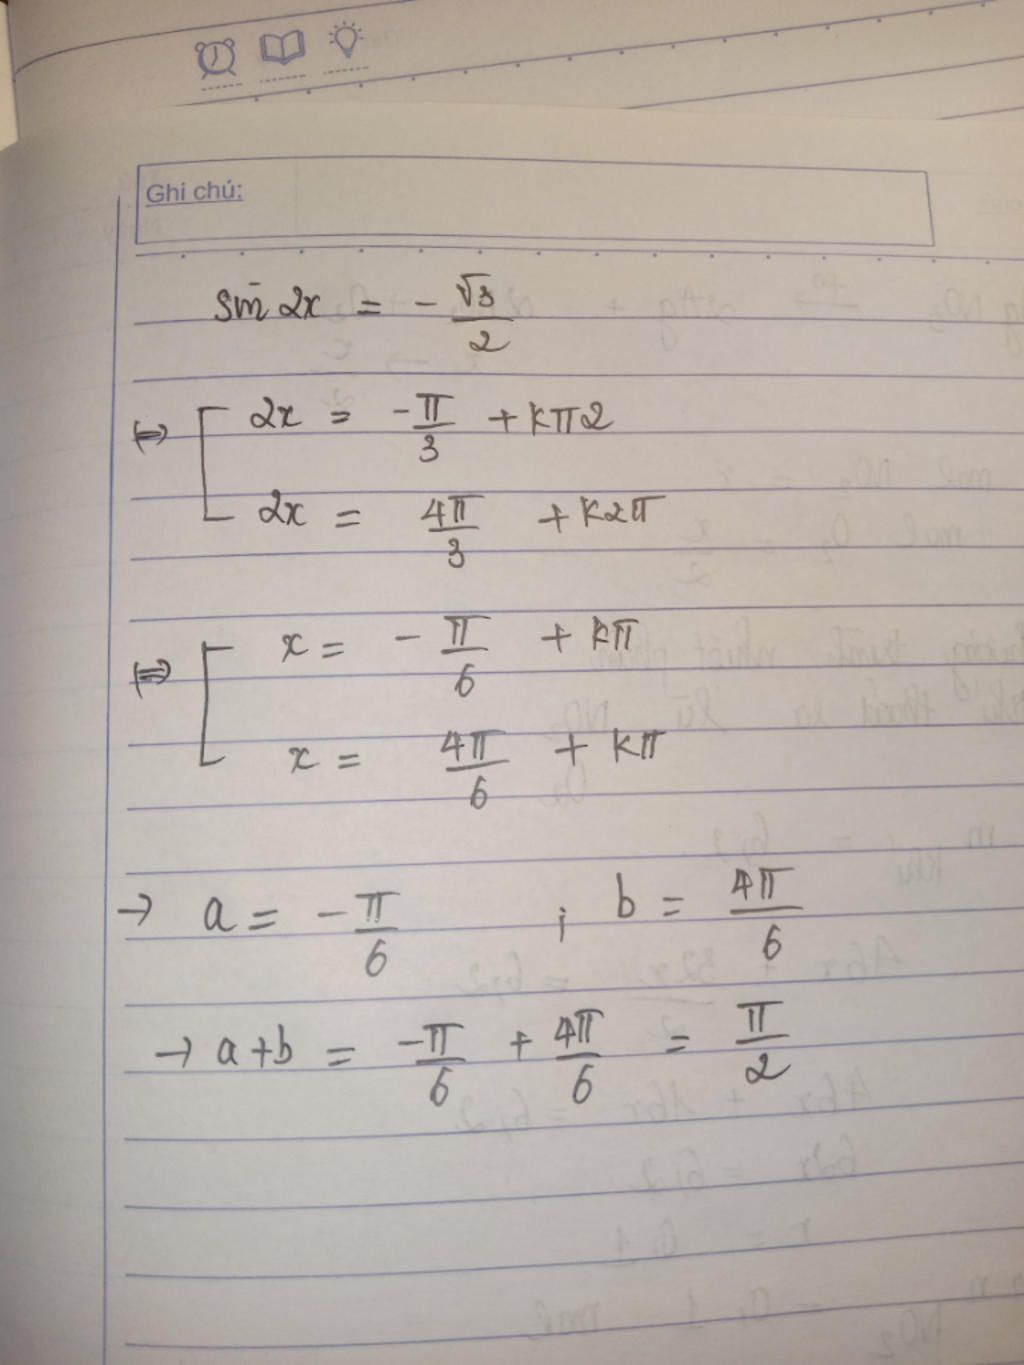 Ghi chú:
sin 2x = - √3/2
⇔ [ 2x = -π/3 + kπ2
2x = 4π/3 + k2π
⇔ [ x = - π/6 + kπ
x = 4π/6 + kπ
→ a = - π/6 ; b = 4π/6
→ a+b = -π/6 + 4π/6 = π/2